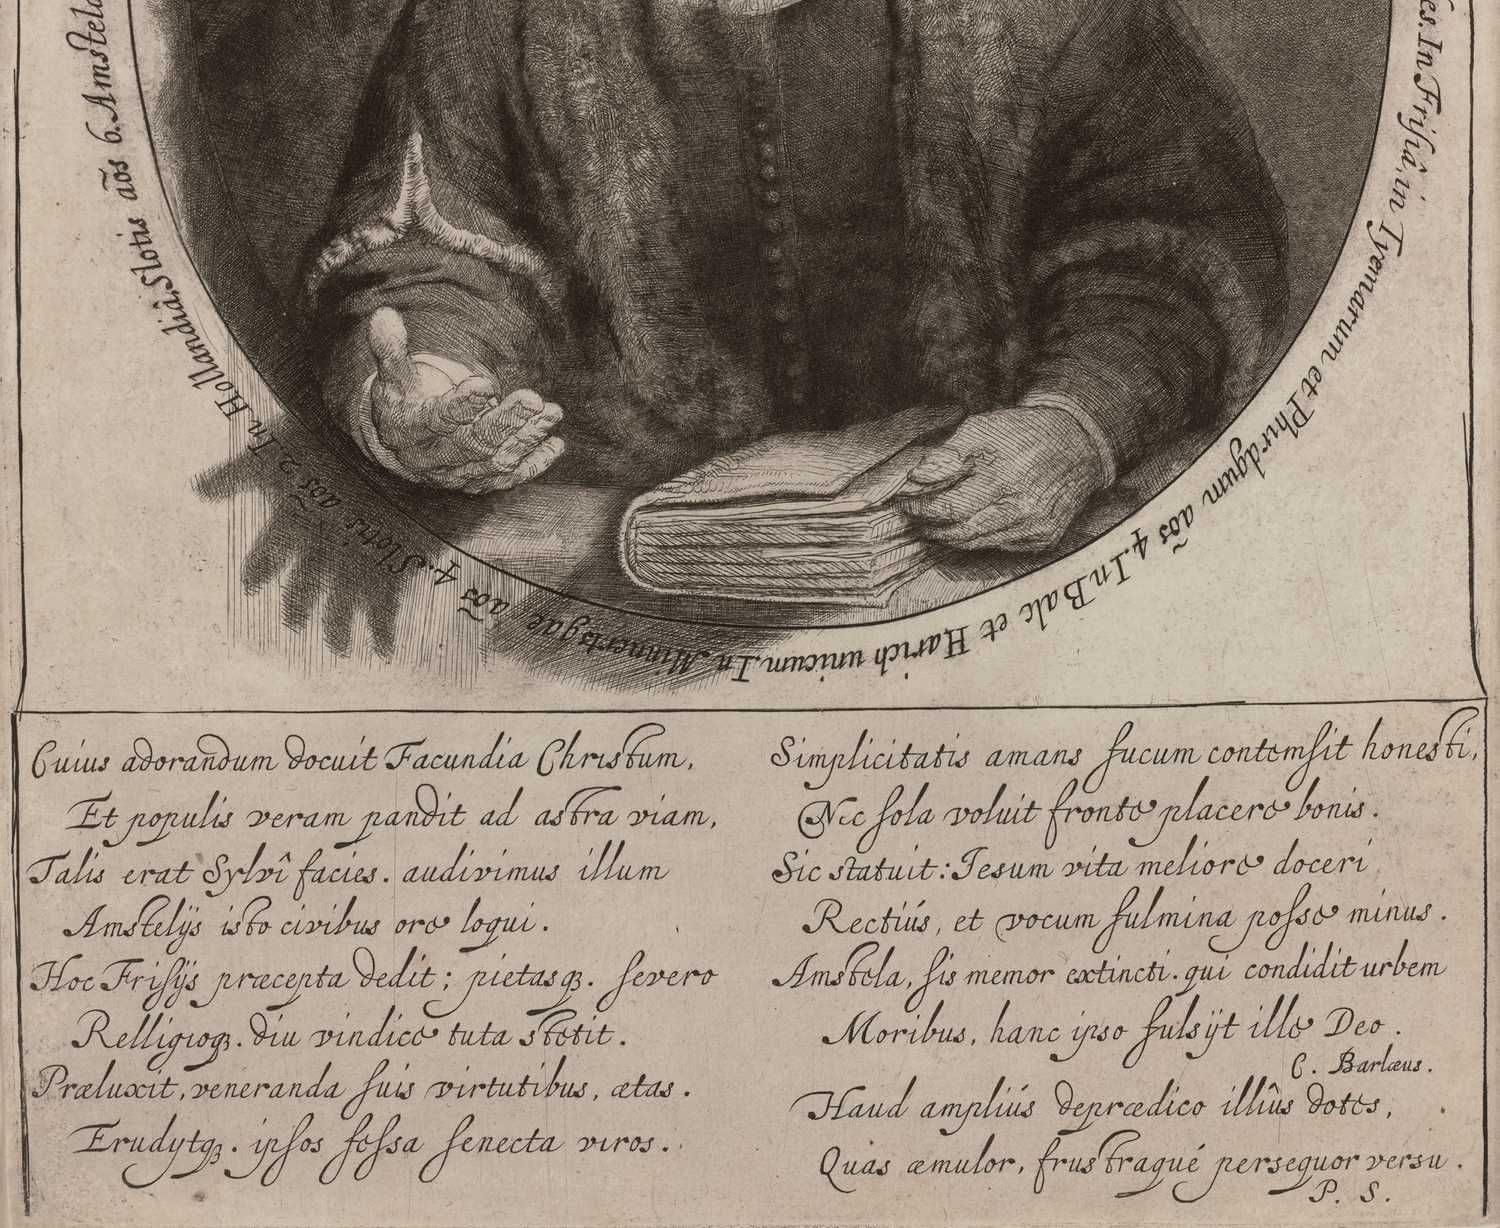 es. In Frisiâ, in Tyemarum et Phirdgum aōs 4. In Balc et Harich unicum. In Minnertsgae aōs 4. Slotis aōs 2. In Hollandiâ, Slotis aōs 6. Amstela
Cuius adorandum docuit Facundia Christum,
Et populis veram pandit ad astra viam,
Talis erat Sylvî facies. audivimus illum
Amstelijs isto civibus ore loqui.
Hoc Frisijs præcepta dedit; pietasqꝫ. severo
Relligioqꝫ. diu vindice tuta stetit.
Præluxit, veneranda suis virtutibus, ætas.
Erudytqꝫ. ipsos fessa senecta viros.
Simplicitatis amans fucum contemsit honesti,
Nec sola voluit fronte placere bonis.
Sic statuit: Iesum vita meliore doceri
Rectiús, et vocum fulmina posse minus.
Amstela, sis memor extincti. qui condidit urbem
Moribus, hanc ipso fulsijt ille Deo.
C. Barlæus.
Haud ampliús deprædico illiûs dotes,
Quas æmulor, frustraqué persequor versu.
P. S.